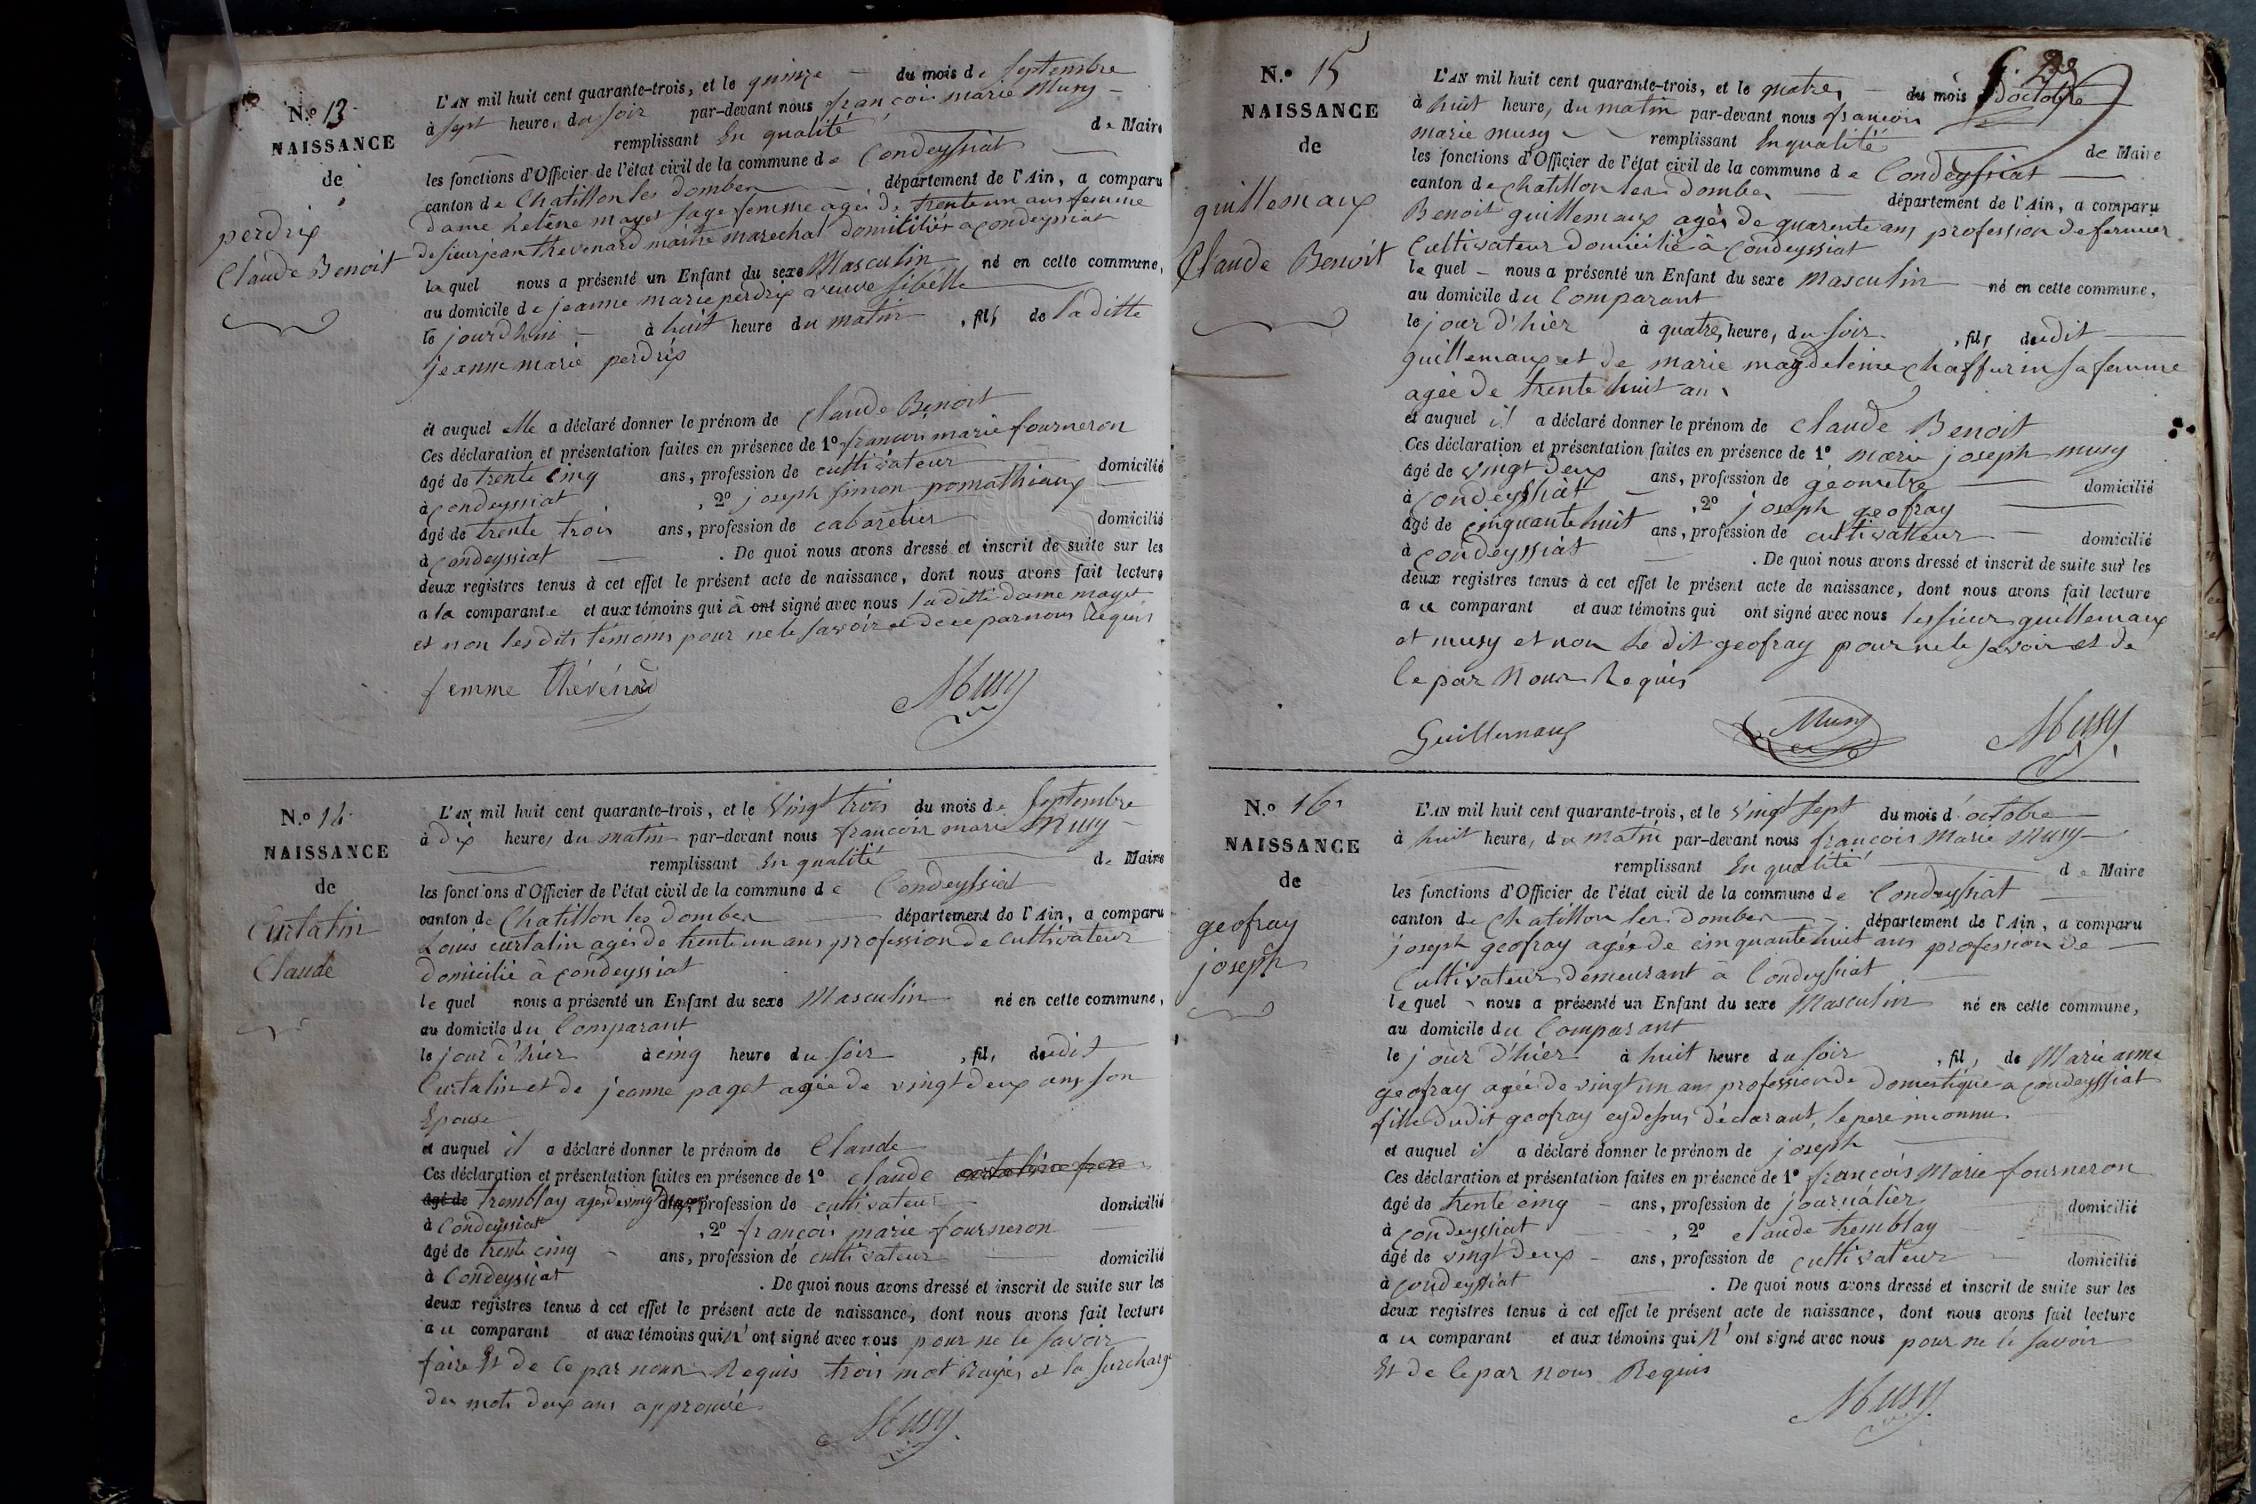 N.º 13.
NAISSANCE
de
perdrix
Claude Benoit
L'AN mil huit cent quarante-trois, et le quinze du mois de Septembre
à sept heure, du soir par-devant nous françois marie Musy
remplissant En qualité de Maire
les fonctions d'Officier de l'état civil de la commune de Condeyssiat
canton de Chatillon les dombes département de l'Ain, a comparu
dame helène mayet sage femme agée de trente un ans femme
de sieur jean thevenard maitre marechal domiciliés a condeyssiat
la quel nous a présenté un Enfant du sexe Masculin né en cette commune,
au domicile de jeanne marie perdrix veuve sibelle
le jourdhui à huit heure du matin, fils de la ditte
jeanne marie perdrix
et auquel elle a déclaré donner le prénom de Claude Benoit
Ces déclaration et présentation faites en présence de 1º françois marie fourneron
âgé de trente cinq ans, profession de cultivateur domicilié
à condeyssiat, 2º joseph simon pomathiaux
âgé de trente trois ans, profession de cabaretier domicilié
à condeyssiat. De quoi nous avons dressé et inscrit de suite sur les
deux registres tenus à cet effet le présent acte de naissance, dont nous avons fait lecture
a la comparante et aux témoins qui a ont signé avec nous la ditte dame mayet
et non les dits témoins pour ne le savoir et de ce par nous Requis
femme thévénard Musy
N.º 14.
NAISSANCE
de
Curtalin
Claude
L'AN mil huit cent quarante-trois, et le Vingt trois du mois de Septembre
à dix heures du matin par-devant nous françois marie Musy
remplissant En qualité de Maire
les fonctions d'Officier de l'état civil de la commune de Condeyssiat
canton de Chatillon les Dombes département de l'Ain, a comparu
Louis curtalin agés de trente un ans profession de cultivateur
domicilié à condeyssiat
le quel nous a présenté un Enfant du sexe Masculin né en cette commune,
au domicile du Comparant
le jour d'hier à cinq heure du soir, fils dudit
Curtalin et de jeanne paget agée de vingt deux ans son
Epouse
et auquel il a déclaré donner le prénom de Claude
Ces déclaration et présentation faites en présence de 1º claude curtalin frere
âgé de tremblay agé de vingt deux ans, profession de cultivateur domicilié
à Condeyssiat, 2º françois marie fourneron
âgé de trente cinq ans, profession de cultivateur domicilié
à Condeyssiat. De quoi nous avons dressé et inscrit de suite sur les
deux registres tenus à cet effet le présent acte de naissance, dont nous avons fait lecture
au comparant et aux témoins qui n'ont signé avec nous pour ne le savoir
faire Et de Ce par nous Requis trois mot Rayés et la surcharge
des mots deux ans approuvé
Musy
N.º 15
NAISSANCE
de
guillemaux
Claude Benoit
L'AN mil huit cent quarante-trois, et le quatre du mois d'octobre
à huit heure, du matin par-devant nous françois
marie musy remplissant En qualité de Maire
les fonctions d'Officier de l'état civil de la commune de Condeyssiat
canton de chatillon les dombes département de l'Ain, a comparu
Benoit guillemaux agés de quarente ans profession de fermier
Cultivateur domicilié à Condeyssiat
le quel nous a présenté un Enfant du sexe Masculin né en cette commune,
au domicile du Comparant
le jour d'hier à quatre heure, du soir, fils dudit
guillemaux et de marie magdeleine chaffurin sa femme
agée de trente huit ans
et auquel il a déclaré donner le prénom de claude Benoit
Ces déclaration et présentation faites en présence de 1º marie joseph musy
âgé de vingt deux ans, profession de géomètre domicilié
à Condeyssiat, 2º joseph geofray
âgé de cinquante huit ans, profession de cultivateur domicilié
à condeyssiat. De quoi nous avons dressé et inscrit de suite sur les
deux registres tenus à cet effet le présent acte de naissance, dont nous avons fait lecture
au comparant et aux témoins qui ont signé avec nous les sieur guillemaux
et musy et non le dit geofray pour ne le savoir et de
Ce par Nous Requis
Guillemaux Musy Musy
N.º 16.
NAISSANCE
de
geofray
joseph
L'AN mil huit cent quarante-trois, et le vingt sept du mois d'octobre
à huit heure, du matin par-devant nous françois Marie Musy
remplissant En qualité de Maire
les fonctions d'Officier de l'état civil de la commune de Condeyssiat
canton de Chatillon les dombes département de l'Ain, a comparu
joseph geofray agée de cinquante huit ans profession de
Cultivateur demeurant à Condeyssiat
le quel nous a présenté un Enfant du sexe Masculin né en cette commune,
au domicile du Comparant
le jour d'hier à huit heure du soir, fils de Marie anne
geofray agée de vingt un ans profession de domestique a condeyssiat
fille dudit geofray cy dessus déclarant, le pere inconnu.
et auquel il a déclaré donner le prénom de joseph
Ces déclaration et présentation faites en présence de 1º françois Marie fourneron
âgé de trente cinq ans, profession de journalier domicilié
à condeyssiat, 2º claude tremblay
âgé de vingt deux ans, profession de cultivateur domicilié
à condeyssiat. De quoi nous avons dressé et inscrit de suite sur les
deux registres tenus à cet effet le présent acte de naissance, dont nous avons fait lecture
au comparant et aux témoins qui n'ont signé avec nous pour ne le savoir
Et de Ce par nous Requis
Musy